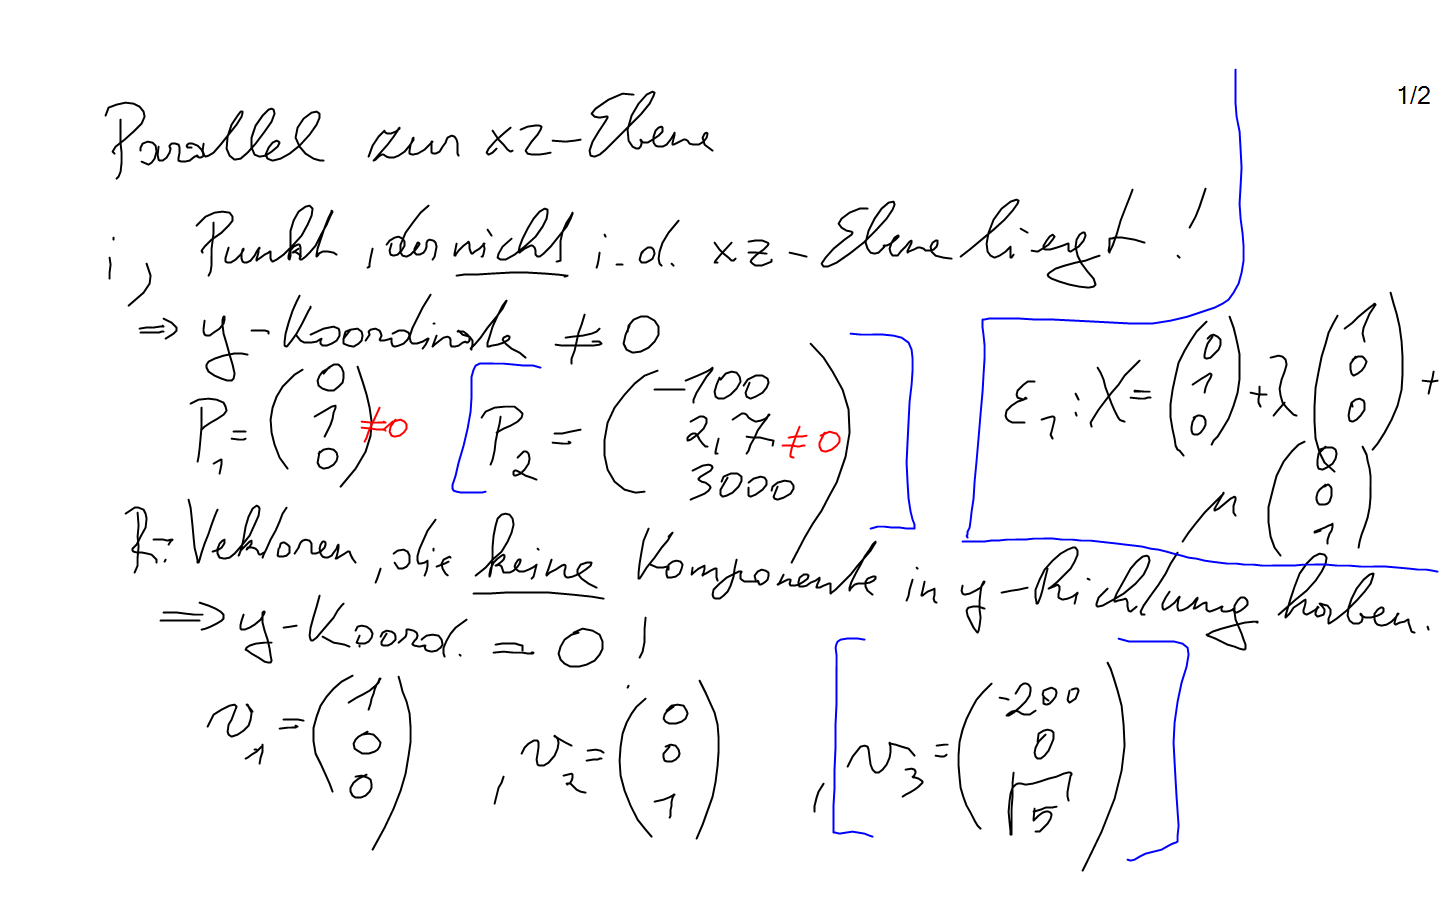 1/2
Parallel zur xz-Ebene
i, Punkt, der nicht i.d. xz-Ebene liegt!
⇒ y-Koordinate ≠ 0
P₁ = (0 1 0) ≠0 [P₂ = (-100 2,7 3000) ≠0]
ε₁: X = (0 1 0) + λ (1 0 0) +
μ (0 0 1)
R.: Vektoren, die keine Komponente in y-Richtung haben.
⇒ y-Koord. = 0!
v₁ = (1 0 0) , v₂ = (0 0 1) , [v₃ = (-200 0 √5)]